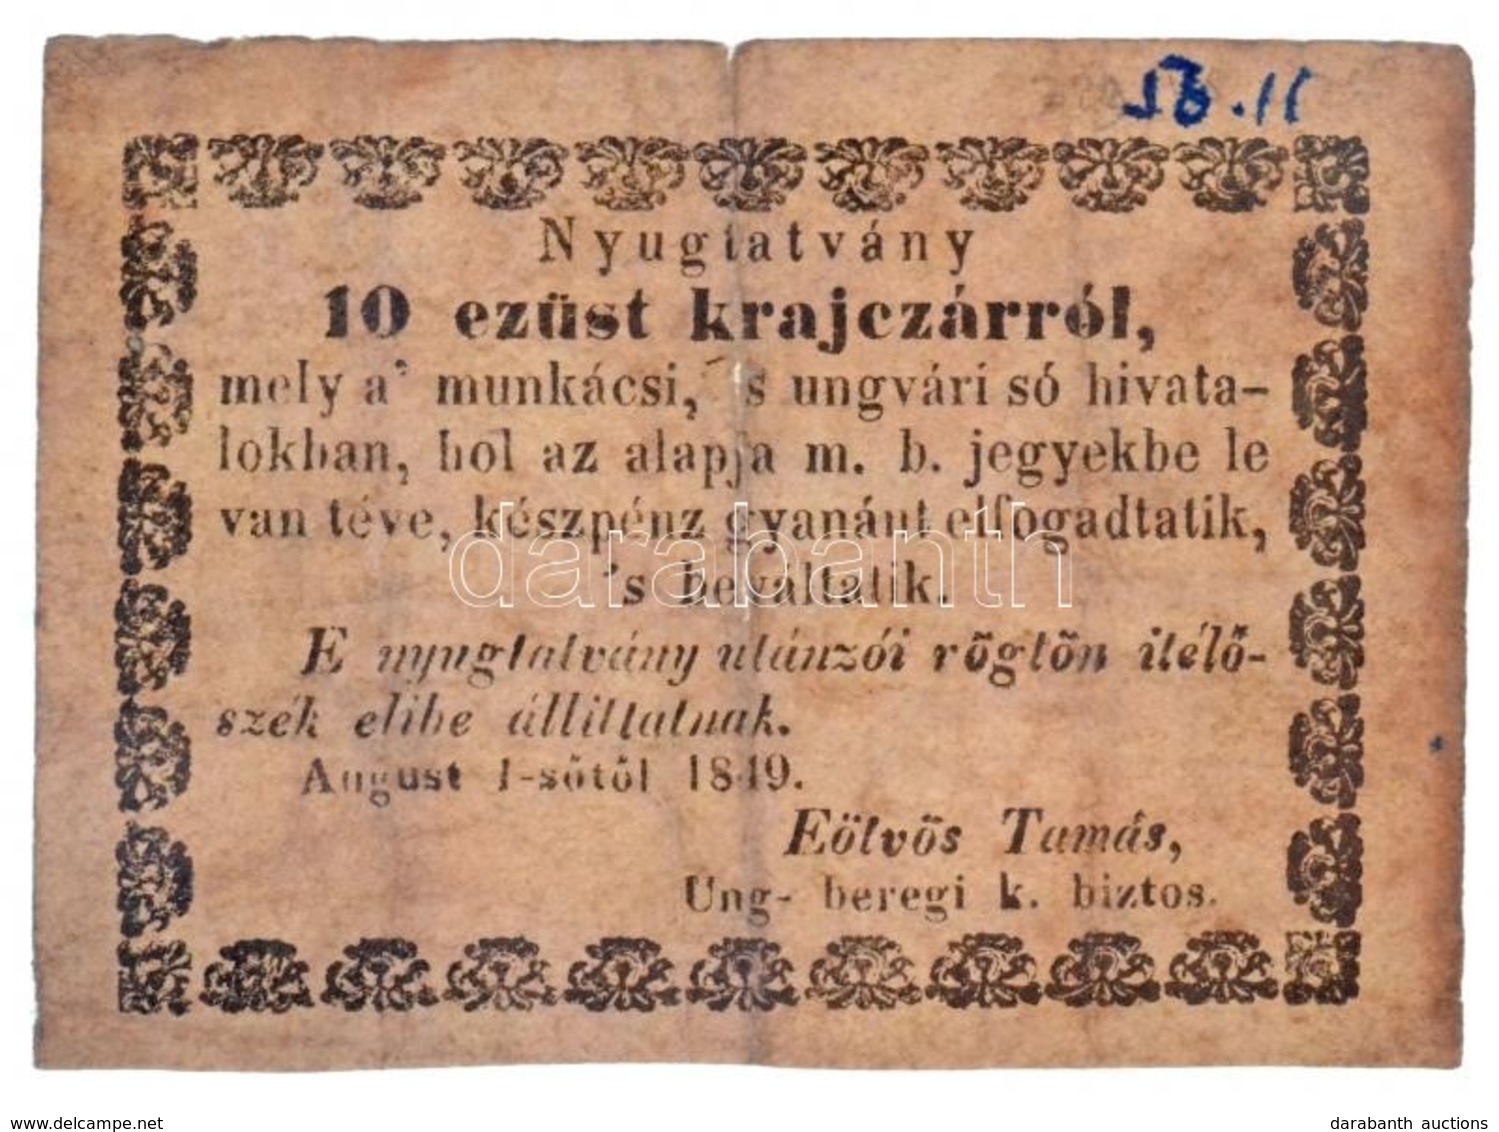 Nyugtatvány
10 ezüst krajczárról,
mely a' munkácsi, 's ungvári só hivata-
lokban, hol az alapja m. b. jegyekbe le
van téve, készpénz gyanánt elfogadtatik,
's beváltatik.
E nyugtatvány utánzói rögtön itélő-
szék elibe állittatnak.
August 1-sőtöl 1849.
Eötvös Tamás,
Ung- beregi k. biztos.
darabanth
www.delcampe.net
darabanth auctions